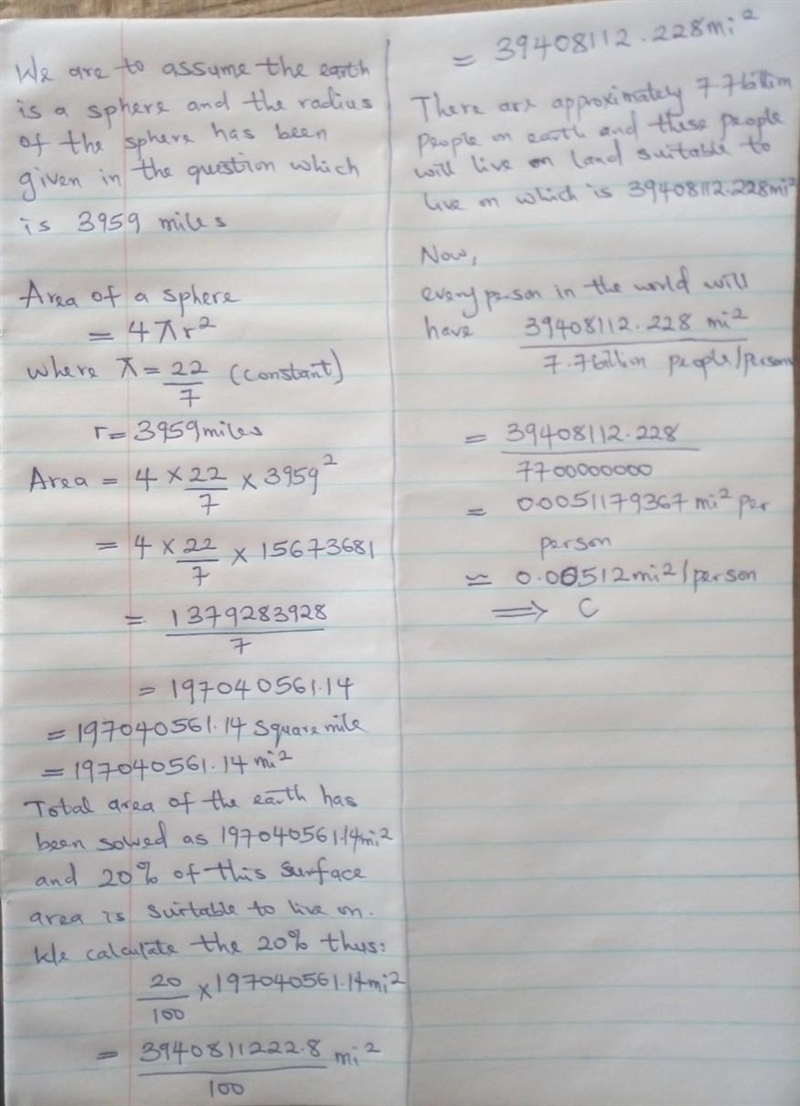 We are to assume the earth
is a sphere and the radius
of the sphere has been
given in the question which
is 3959 miles
Area of a sphere
= 4πr²
where π = 22/7 (constant)
r = 3959 miles
Area = 4 × 22/7 × 3959²
= 4 × 22/7 × 15673681
= 1379283928/7
= 197040561.14
= 197040561.14 Square mile
= 197040561.14 mi²
Total area of the earth has
been solved as 197040561.14mi²
and 20% of this surface
area is suitable to live on.
We calculate the 20% thus:
20/100 × 197040561.14mi²
= 3940811222.8/100 mi²
= 39408112.228mi²
There are approximately 7.7billion
people on earth and these people
will live on land suitable to
live on which is 39408112.228mi²
Now,
every person in the world will
have 39408112.228 mi²/7.7billion people/person
= 39408112.228/7700000000
= 0.0051179367 mi² per
person
≈ 0.00512mi²/person
⟹ C